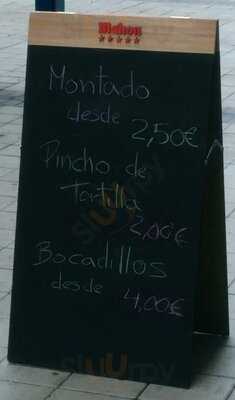 Mahou
Montado
desde
2,50€
Pincho de
Tortilla
2,00€
Bocadillos
desde
4,00€